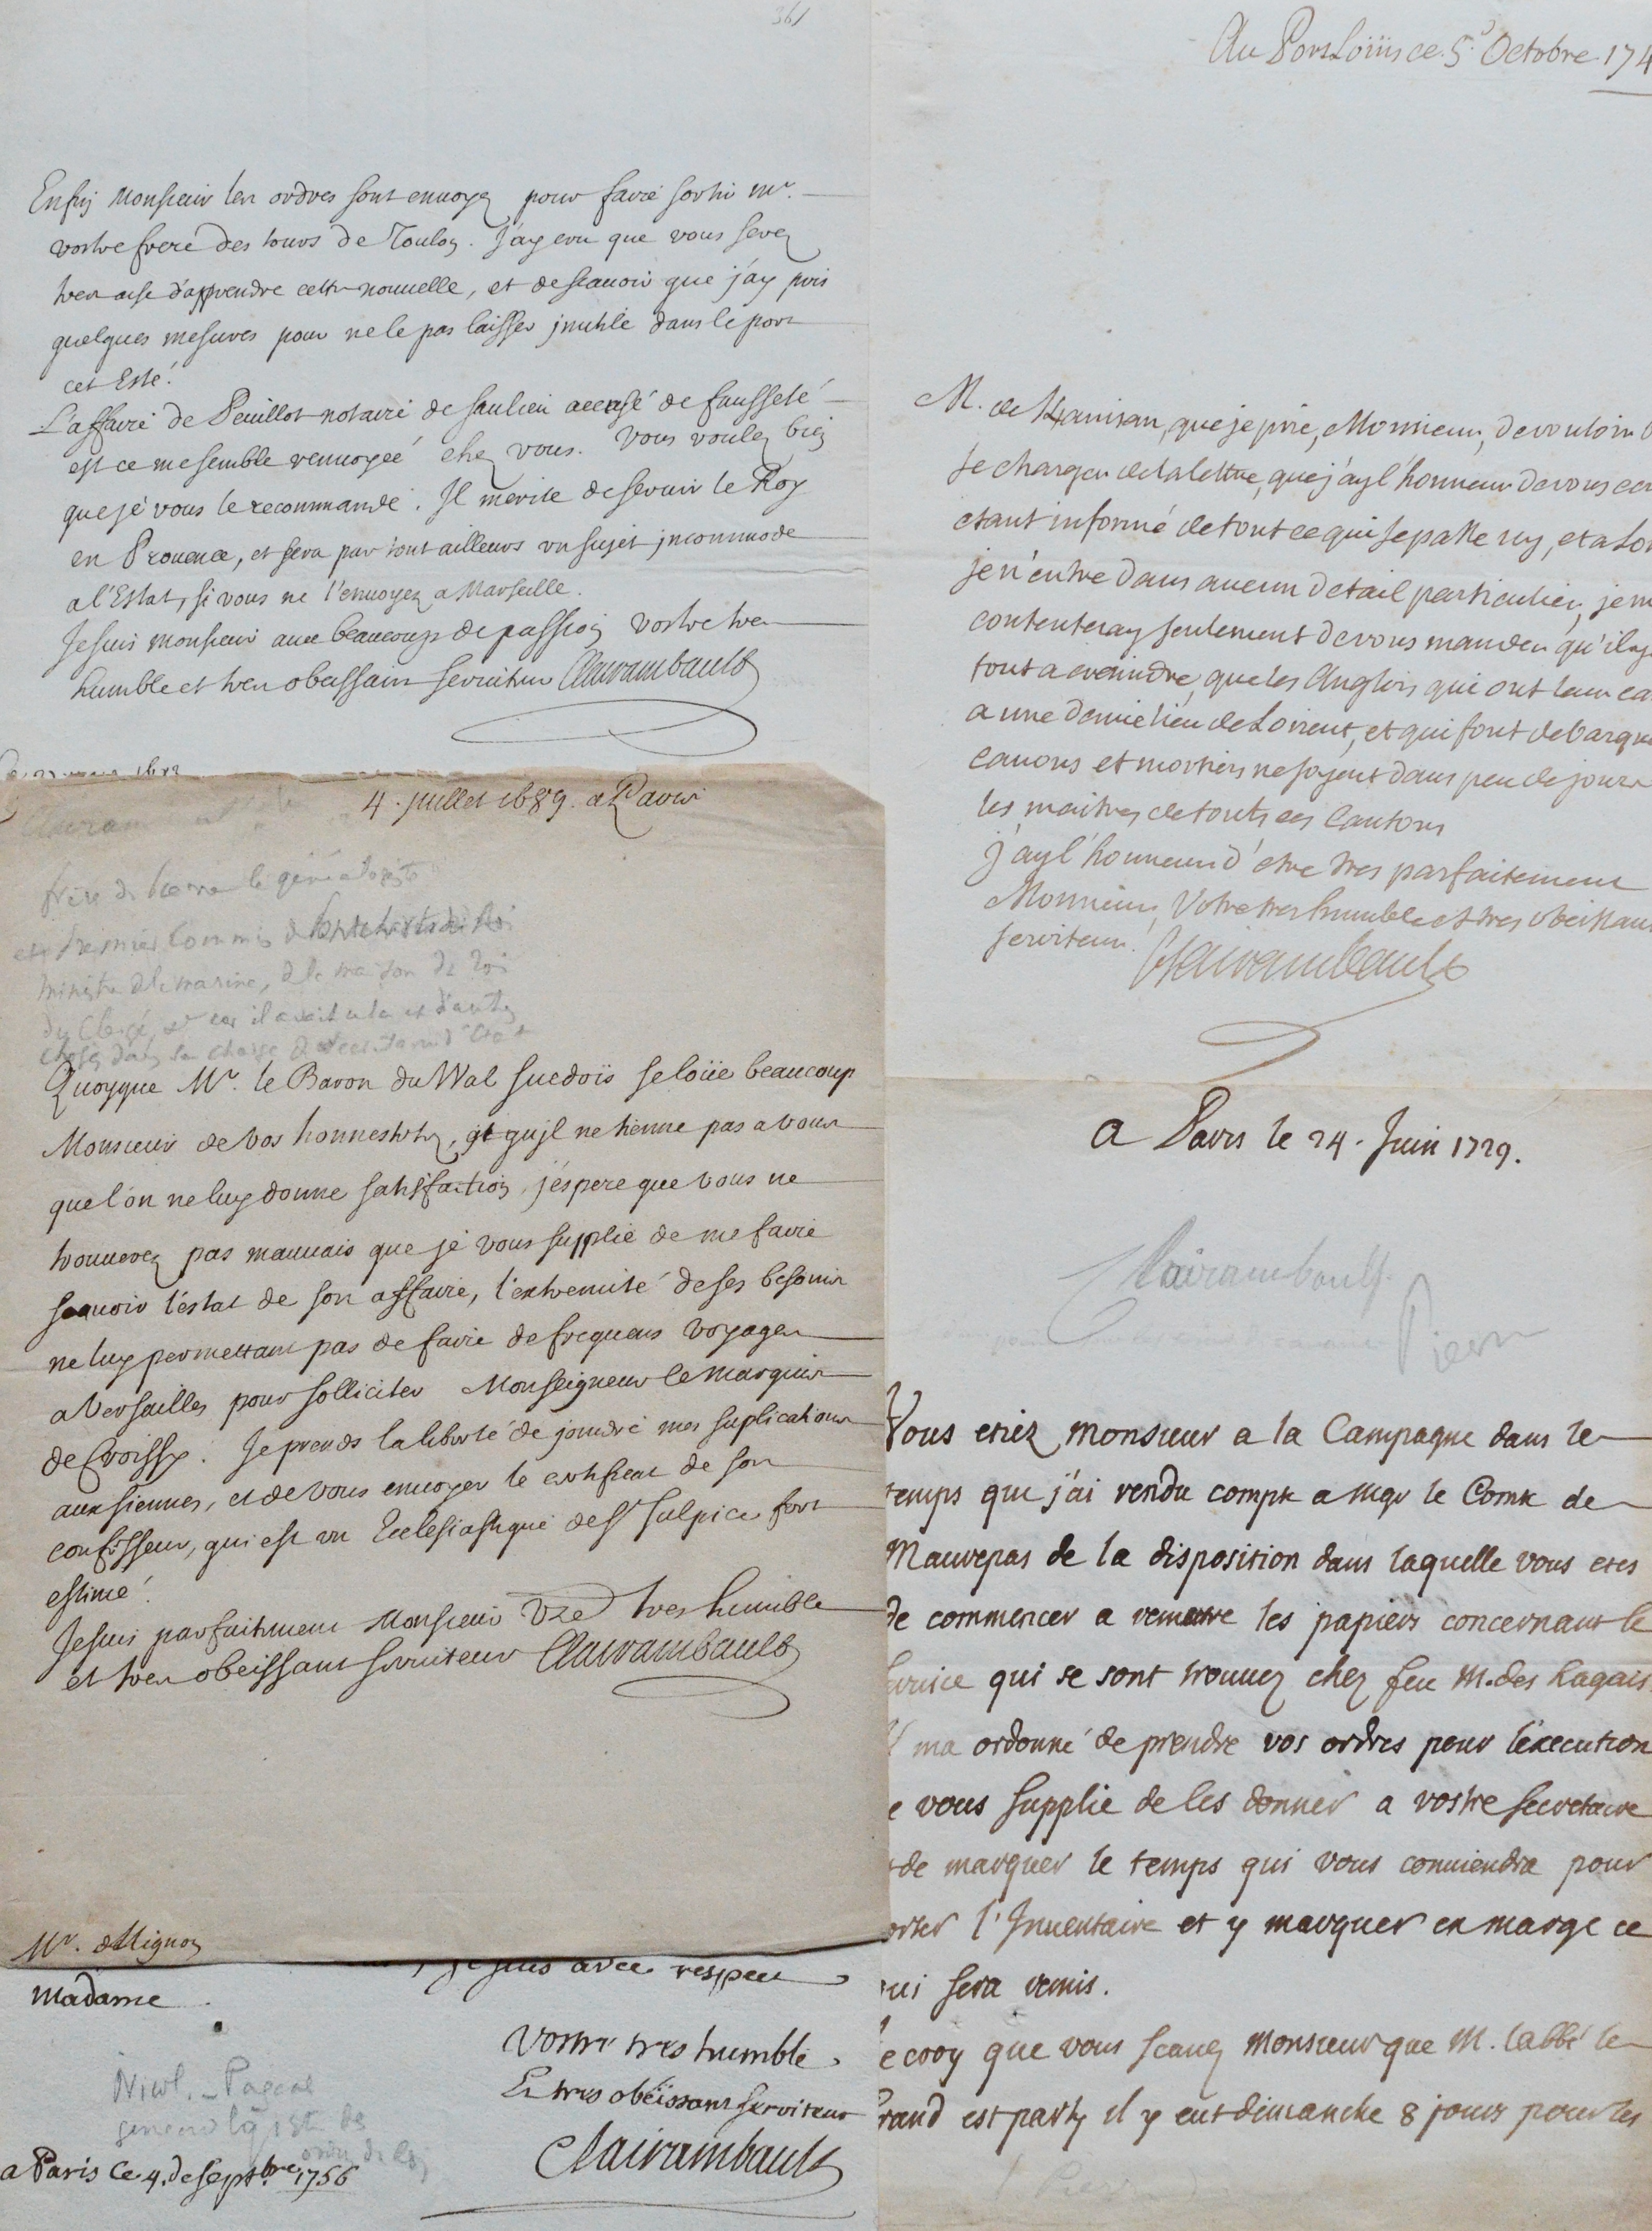 361
Enfin Monsieur les ordres sont enuoyez pour faire sortir Mr.
vostre frere des tours de Toulon. J'ay creu que vous serez
tres aise d'apprendre cette nouuelle, et de scauoir que j'ay pris
quelques mesures pour ne le pas laisser jnutile dans le port
cet Esté.
L'affaire de Peuillot notaire de Saulieu accusé de fausseté
est ce me semble renuoyeé chez vous. Vous voulez bien
que je vous le recommande. Il mérite de seruir le Roy
en Prouence, et sera par tout ailleurs un sujet jncommode
a l'Estat, si vous ne l'enuoyez a Marseille.
Je suis monsieur auec beaucoup de passion vostre tres
humble et tres obeissant seruiteur Clairambault
4. juillet 1689. a Paris
frère de Pierre le généalogiste
et premier Commis
ministre de la marine, de la maison du Roi
du Clergé, car il avait
charge de secrétaire d'Etat
Quoyque Mr. le Baron du Wal suedois se loüe beaucoup
Monsieur de vos honnestetez, et qu'jl ne tienne pas a vous
que l'on ne luy donne satisfaction, j'éspere que vous ne
trouuerez pas mauuais que je vous supplie de me faire
scauoir l'éstat de son affaire, l'extremité de ses besoins
ne luy permettant pas de faire de frequens voyages
a Versailles pour solliciter Monseigneur le Marquis
de Croissy. Je prends la liberté de joindre mes suplications
aux siennes, et de vous enuoyer le certificat de son
confesseur, qui est un Ecclesiastique de St Sulpice fort
estimé.
Je suis parfaitement Monsieur Vre tres humble
et tres obeissant seruiteur Clairambault
Mr. de Mignon
je suis avec respect
Madame
Vostre tres humble
Et tres obëissant serviteur
Clairambault
Nicol. Pascal
généalogiste des
ordres du Roi
a Paris ce 4. de Septbre. 1756
Au Port Loüis ce 5e Octobre 174
M. de Kanisan, que je prie, Monsieur, de vouloir b
se charger de la lettre, que j'ay l'honneur de vous ecr
etant informé de tout ce qui se passe icy, et a Lor
je n'entre dans aucun detail particulier, je m
contenteray seulement de vous mander qu'il y
tout a craindre, que les Anglois qui ont leur ca
a une demie lieu de Lorient, et qui font debarqu
canons et mortiers ne soyent dans peu de jours
les maitres de touts ces Cantons
j'ay l'honneur d'etre tres parfaitement
Monsieur, Votre tres humble et tres obeissant
serviteur. Clairambault
A Paris le 24. Juin 1729.
Clairambault
Pierre
Vous etiez Monsieur a la Campagne dans le
temps que j'ai rendu compte a Mgr le Comte de
Maurepas de la disposition dans laquelle vous etes
de commencer a remettre les papiers concernant le
service qui se sont trouuez chez feu M. des Ragais
Il ma ordonné de prendre vos ordres pour l'execution
e vous supplie de les donner a vostre secretaire
de marquer le temps qui vous conuiendra pour
orter l'Inuentaire et y marquer en marge ce
ui sera remis.
e croy que vous scauez Monsieur que M. l'abbé le
rand est party il y eut dimanche 8 jours pour les